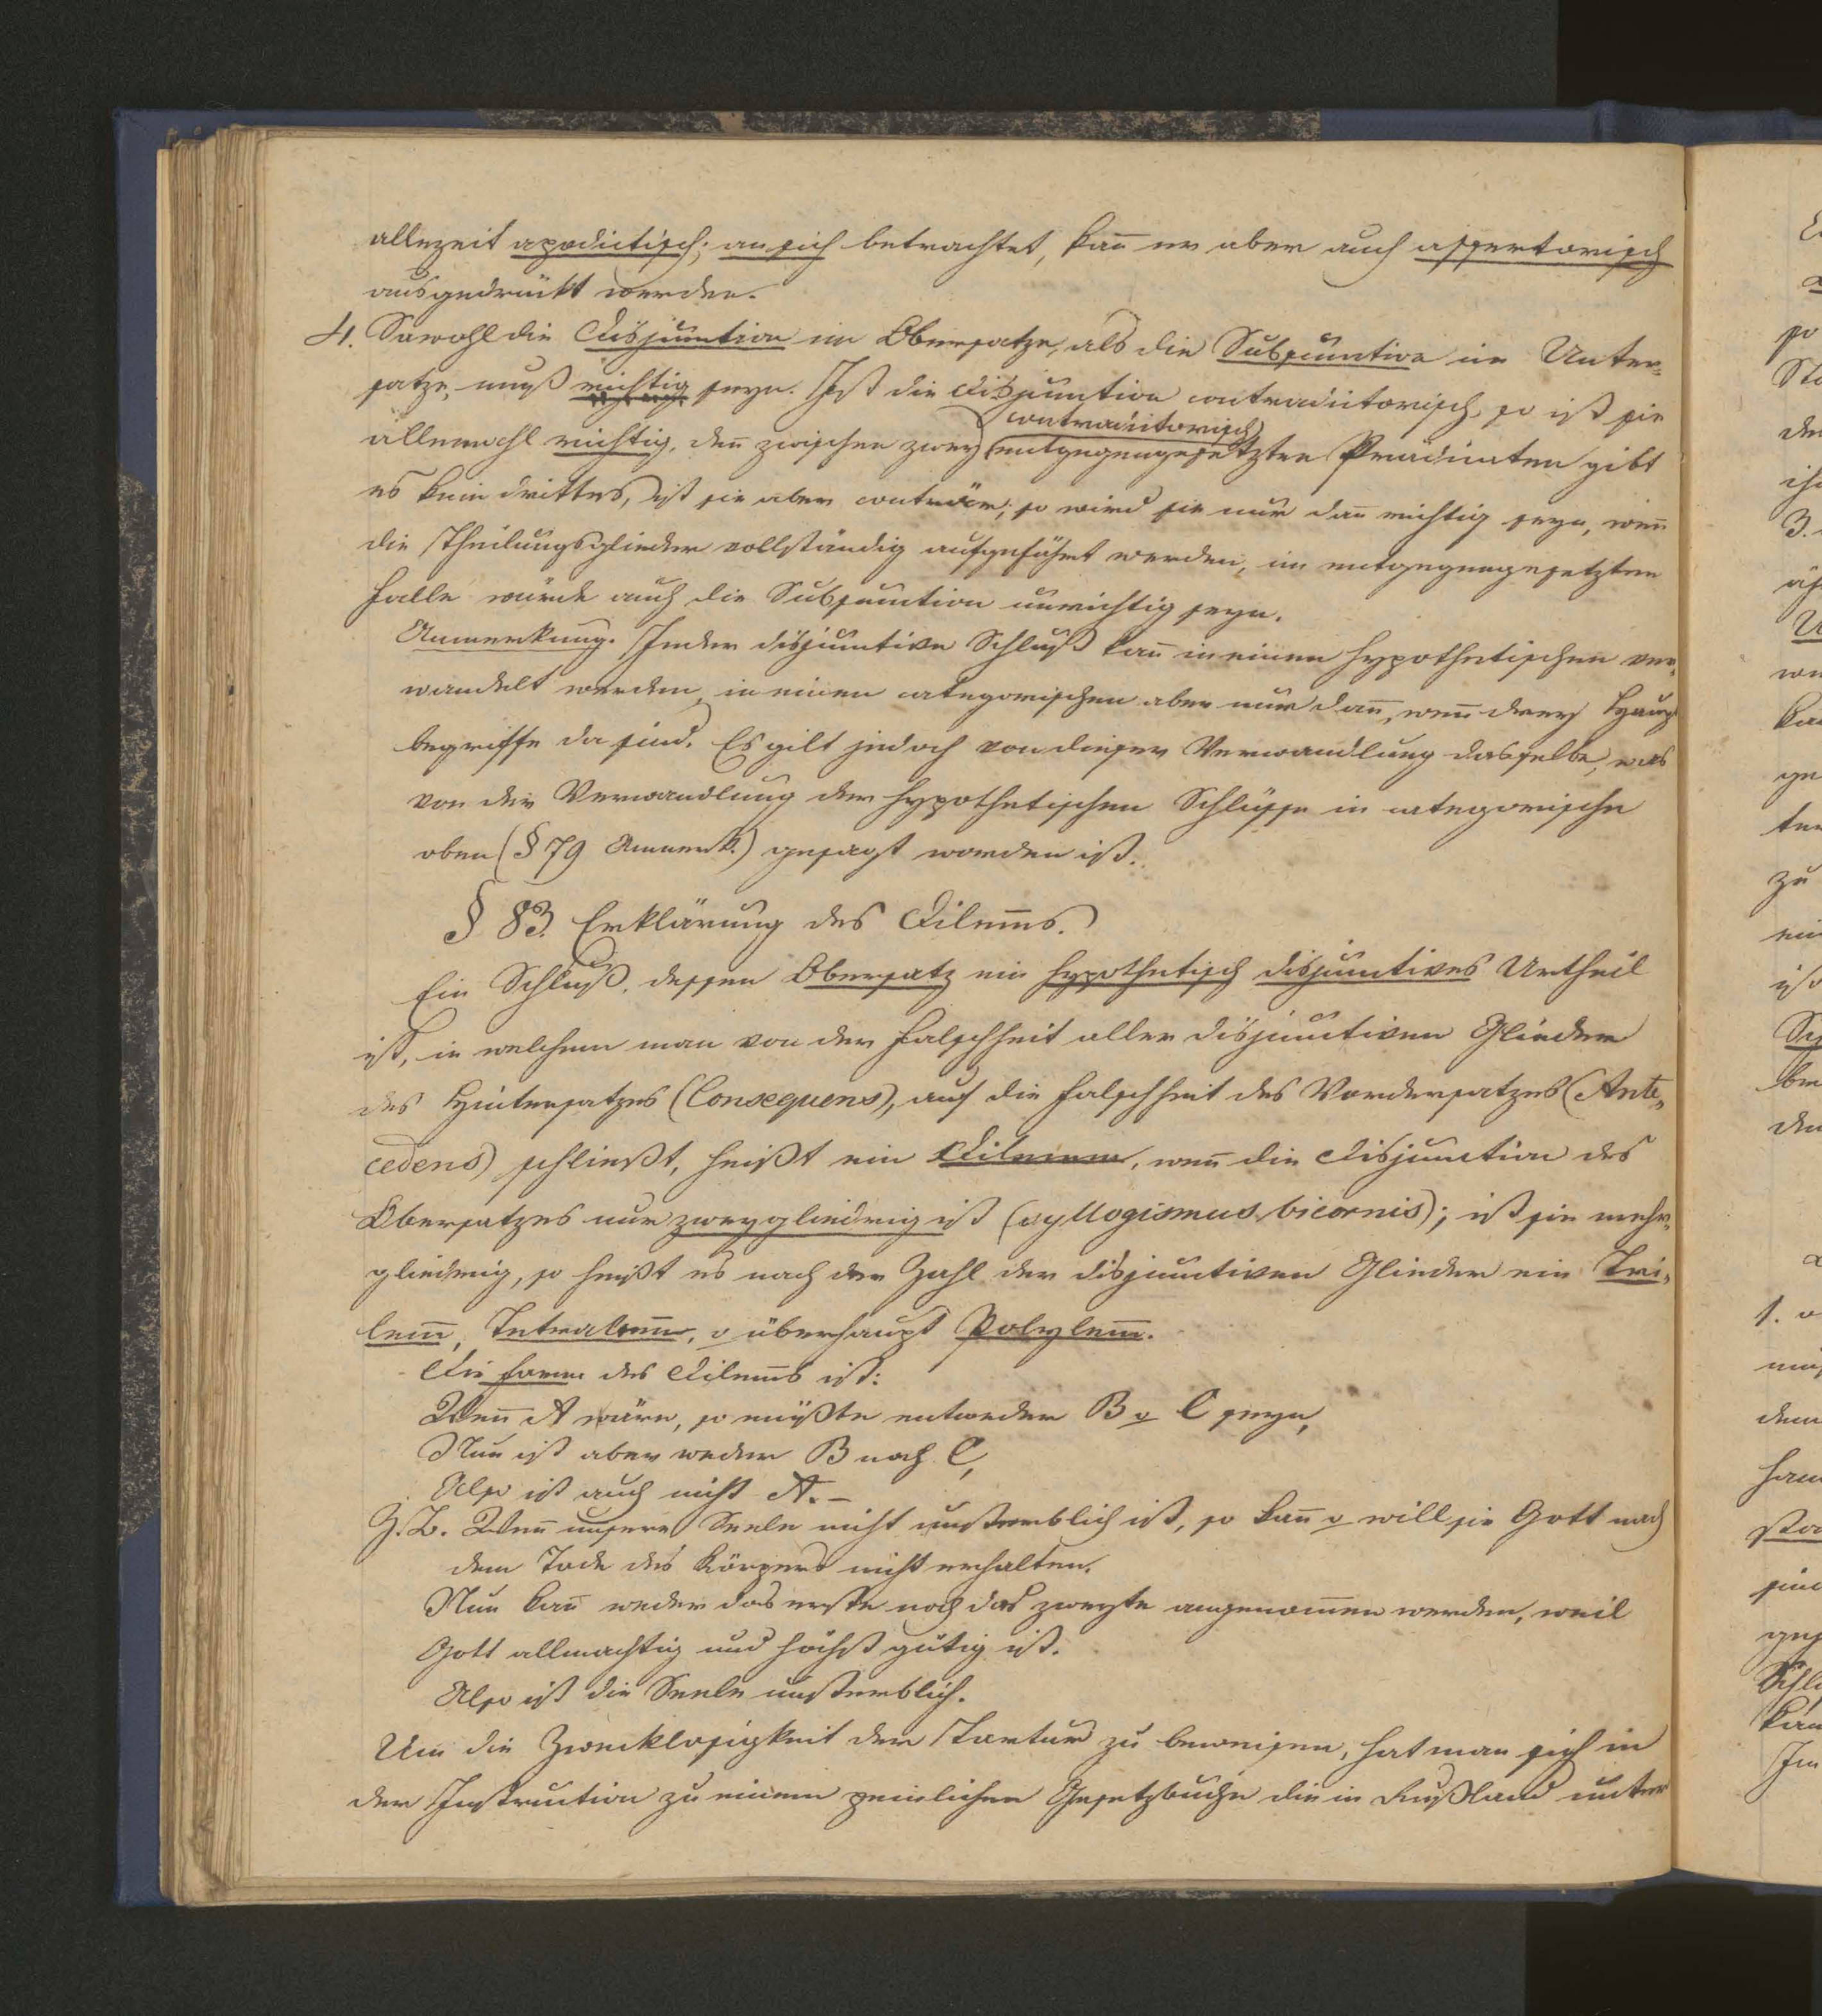 allezeit apodictisch; an sich betrachtet, kañ er aber auch assertorisch
ausgedrückt werden.
4. Sowohl die Disjunction im Obersatze, als die Subsumtion im Unter-
satze, muß richtig seyn. Ist die Disjunction contradictorisch, so ist sie
allemahl richtig, deñ zwischen zwey contradictorisch entgegengesetzten Prädicaten gibt
es kein drittes, ist sie aber conträr; so wird sie nur dañ richtig seyn, weñ
die Theilungsglieder vollständig aufgeführt werden, im entgegengesetzten
Falle würde auch die Subsumtion unrichtig seyn.
Anmerkung. Jeder disjunctive Schluß kañ in einen hypothetischen ver-
wandelt werden, in einen categorischen aber nur dañ, weñ drey Haupt
begriffe da sind. Es gilt jedoch von dieser Verwandlung dasselbe, was
von der Verwandlung der hypothetischen Schlüsse in categorische
oben (§ 79 Anmerk.) gesagt worden ist.
§ 83. Erklärung des Dilem̄s.
Ein Schluß, dessen Obersatz ein hypothetisch disjunctives Urtheil
ist, in welchem man von der Falschheit aller disjunctiven Glieder
des Hintersatzes (Consequens), auf die Falschheit des Vordersatzes (Ante-
cedens) schließt, heißt ein Dilemma, weñ die Disjunction des
Obersatzes nur zweygliedrig ist (syllogismus bicornis); ist sie mehr-
gliedrig, so heißt es nach der Zahl der disjunctiven Glieder ein Tri-
lem̄, Tetralem̄, o überhaupt Polylem̄.
Die Form des Dilem̄s ist:
Weñ A wäre, so müßte entweder B o C seyn,
Nun ist aber weder B noch C,
Also ist auch nicht A. –
Z. B. Weñ unsere Seele nicht unsterblich ist, so kañ o will sie Gott nach
dem Tode des Körpers nicht erhalten.
Nun kañ weder das erste noch das zweyte angenom̄en werden, weil
Gott allmachtig und höchst gütig ist.
Also ist die Seele unsterblich.
Um die Zwecklosigkeit der Tortur zu beweisen, hat man sich in
der Instruction zu einem peinlichen Gesetzbuche die in Rußland unter